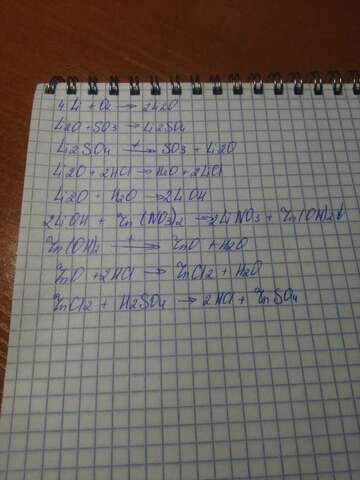 4Li + O2 → 2Li2O
Li2O + SO3 → Li2SO4
Li2SO4 —t→ SO3 + Li2O
Li2O + 2HCl → H2O + 2LiCl
Li2O + H2O → 2LiOH
2LiOH + Zn(NO3)2 → 2LiNO3 + Zn(OH)2↓
Zn(OH)2 —t→ ZnO + H2O
ZnO + 2HCl → ZnCl2 + H2O
ZnCl2 + H2SO4 → 2HCl + ZnSO4